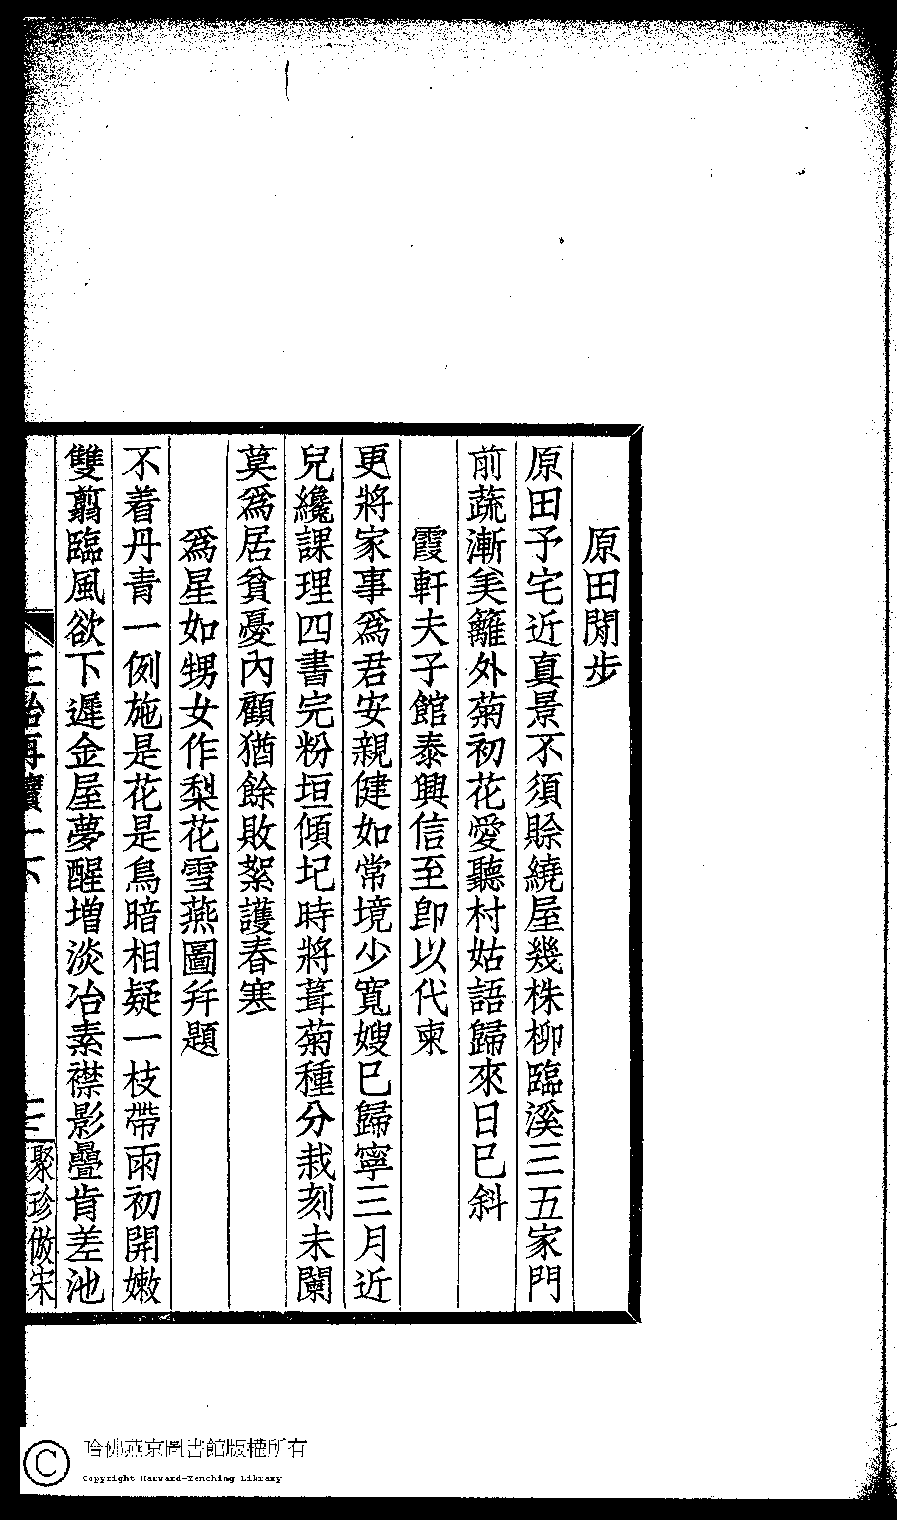 原田閒步
原田予宅近真景不須賒繞屋幾株柳臨溪三五家門
前蔬漸美籬外菊初花愛聽村姑語歸來日已斜
霞軒夫子館泰興信至卽以代柬
更將家事爲君安親健如常境少寬嫂已歸寧三月近
兒纔課理四書完粉垣傾圮時將葺菊種分栽刻未闌
莫爲居貧憂內顧猶餘敗絮護春寒
爲星如甥女作梨花雪燕圖幷題
不着丹青一例施是花是鳥暗相疑一枝帶雨初開嫩
雙翦臨風欲下遲金屋夢醒增淡冶素襟影疊肯差池
聚珍倣宋
哈佛燕京圖書館版權所有
Copyright Harvard-Yenching Library